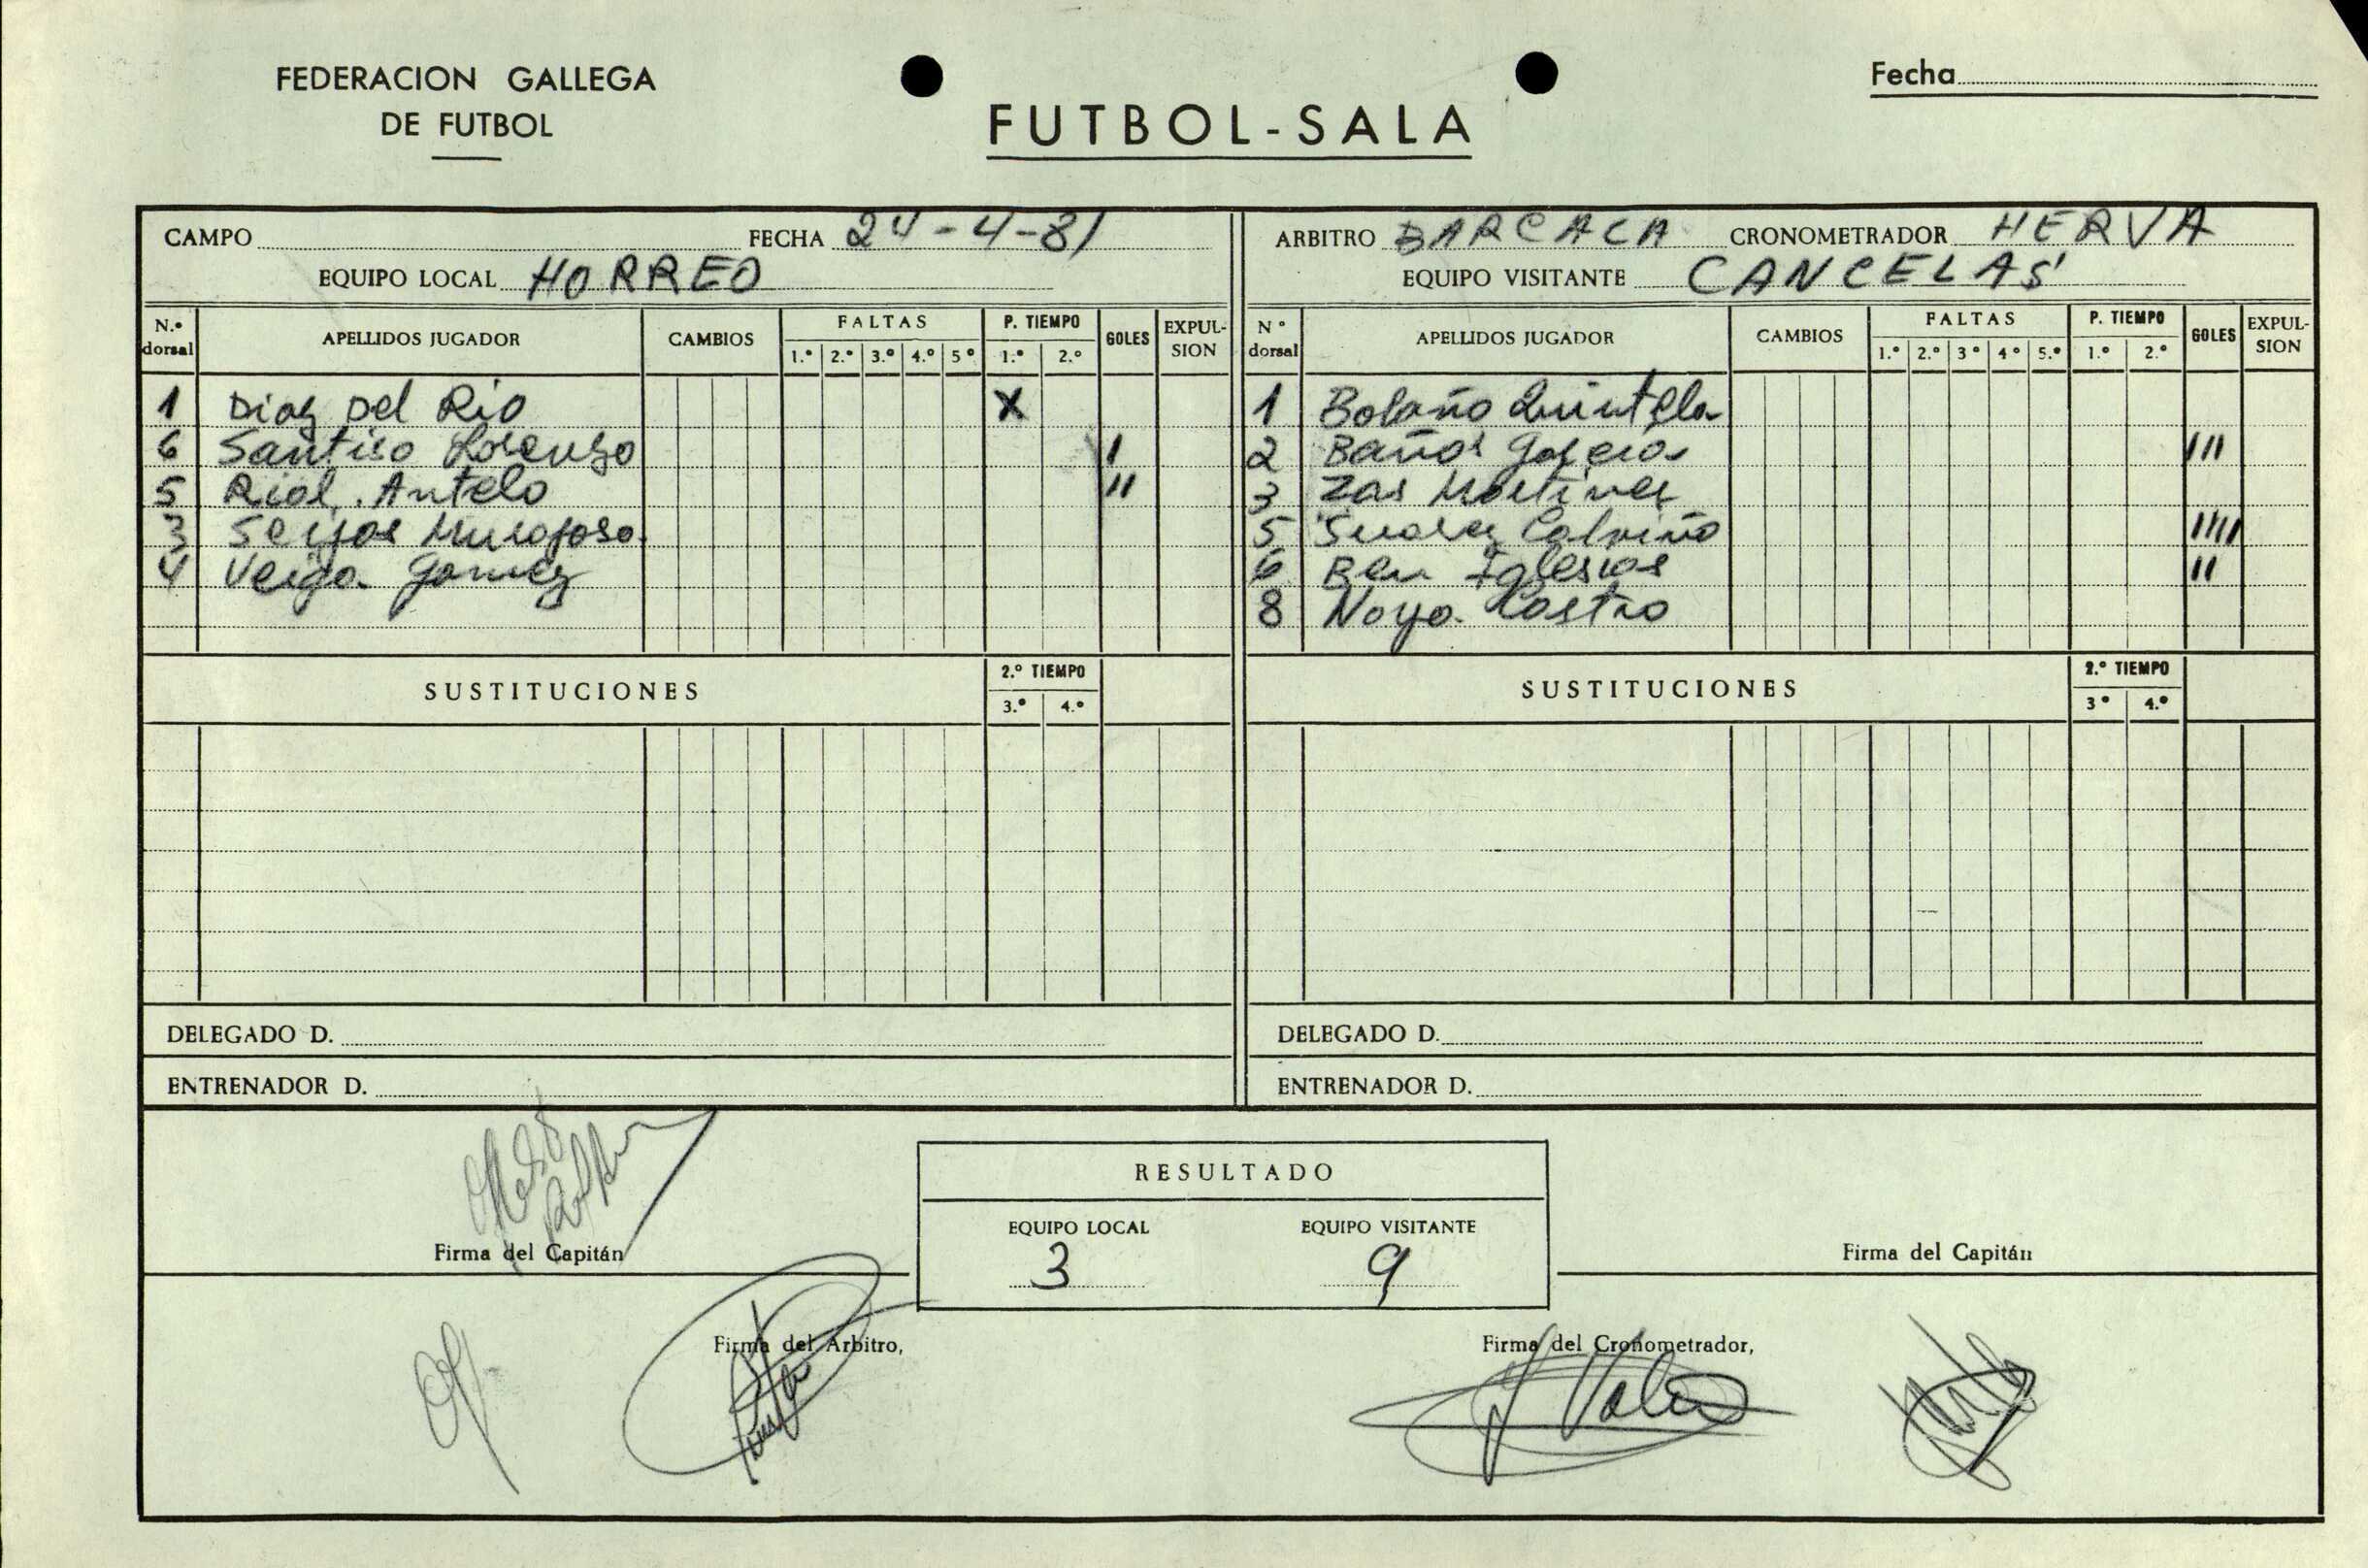 FEDERACION GALLEGA
DE FUTBOL
FUTBOL-SALA
Fecha
CAMPO FECHA 24-4-81
EQUIPO LOCAL HORREO
N.º dorsal APELLIDOS JUGADOR CAMBIOS FALTAS 1.º 2.º 3.º 4.º 5º P. TIEMPO 1.º 2.º GOLES EXPUL-SION
1 Diaz Del Rio X
6 Santiso Lorenzo I
5 Rial Antelo II
3 Seijas
4 Veiga Gomez
SUSTITUCIONES 2.º TIEMPO
3.º 4.º
DELEGADO D.
ENTRENADOR D.
ARBITRO BARCALA CRONOMETRADOR HERVA
EQUIPO VISITANTE CANCELAS
Nº dorsal APELLIDOS JUGADOR CAMBIOS FALTAS 1.º 2.º 3º 4º 5.º P. TIEMPO 1.º 2.º GOLES EXPUL-SION
1 Bolaño Quintela
2 Baños Garcia III
3 Zas Martinez
5 Suarez Calviño IIII
6 Rey Iglesias II
8 Noya Castro
SUSTITUCIONES 2.º TIEMPO
3º 4.º
DELEGADO D.
ENTRENADOR D.
RESULTADO
EQUIPO LOCAL EQUIPO VISITANTE
3 9
Firma del Capitán
Firma del Capitán
Firma del Arbitro,
Firma del Cronometrador,